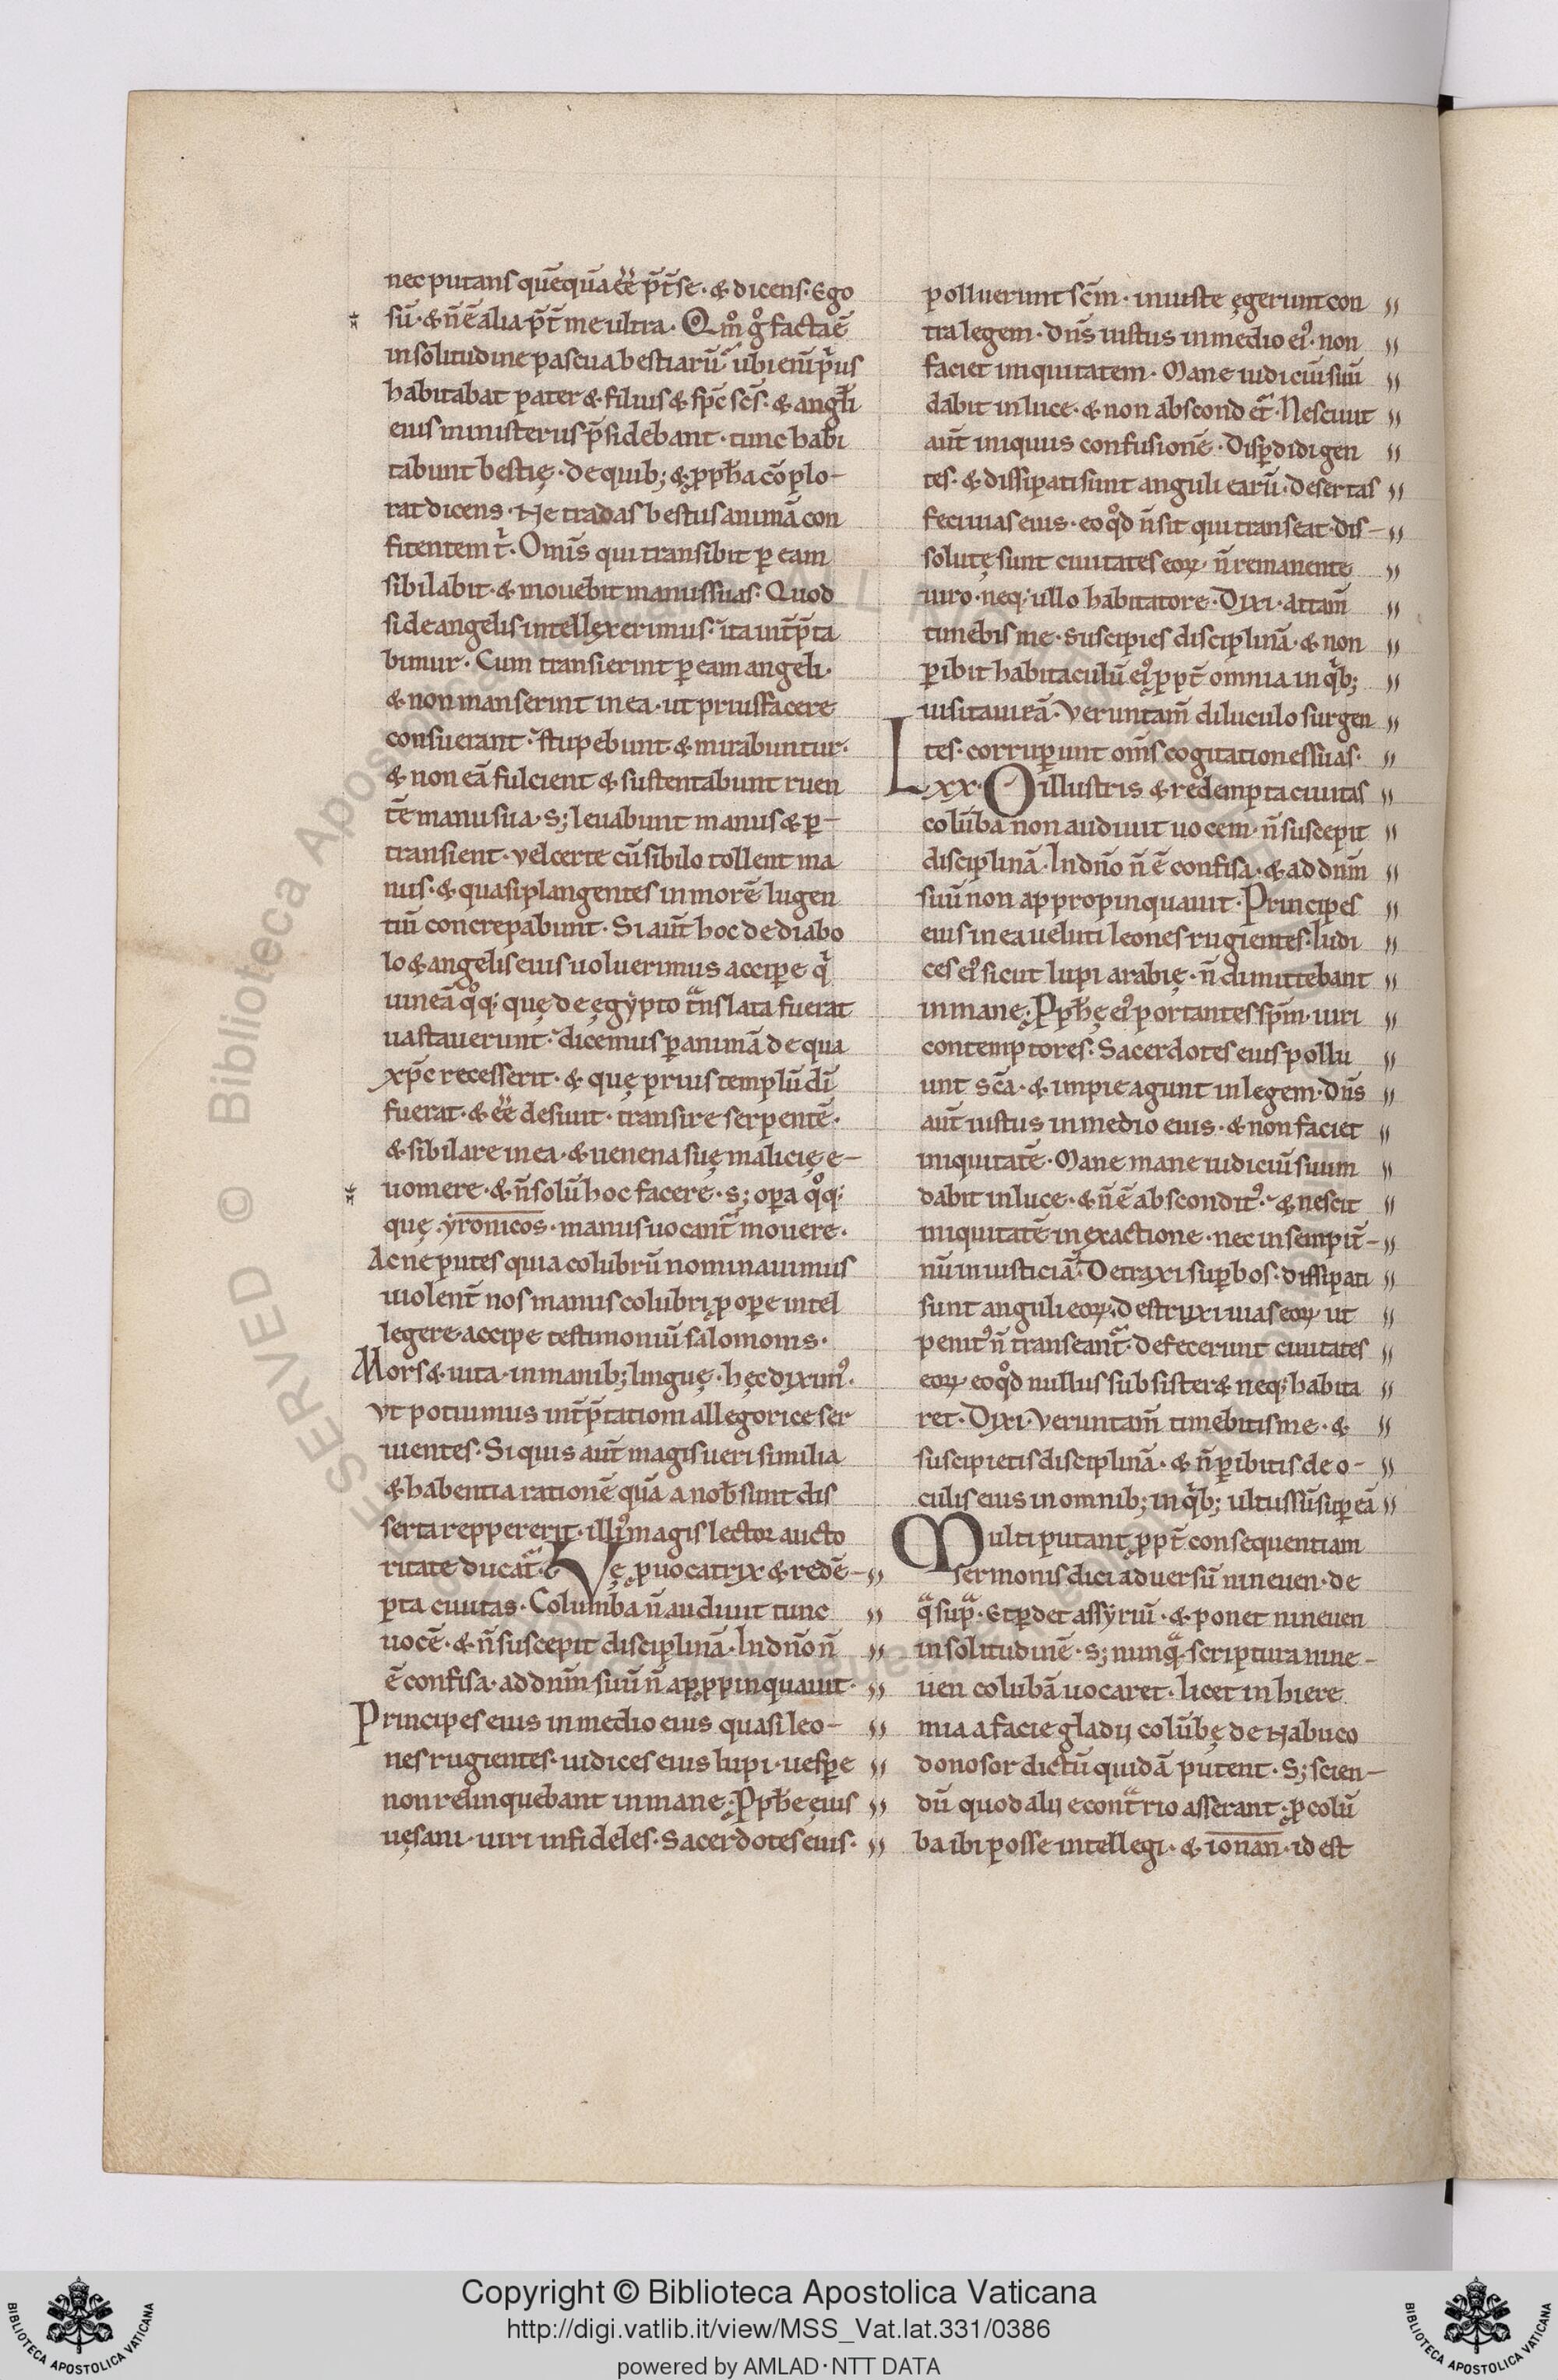 nec putans quē quā ēē p̄t̄ se · & dicens · Ego
sū · & n̄ ē alia p̄t̄ me ultra · Qm̊ g̊ facta ē
in solitudine pascua bestiarū · ubi eni p̄us
habitabat pater & filius & sp̄c sc̄s · & angl̄i
eius ministeriis p̄sidebant · tunc habi
tabunt bestię · de quib; & ꝓph̄a cōplo-
rat dicens · Ne tradas bestiis animā con
fitentem t̄ · Om̄s qui transibit ꝑ eam
sibilabit · & mouebit manus suas · Quod
si de angelis intellexerimus · ita int̄p̄ta
bimur · Cum transierint ꝑ eam angeli ·
& non manserint in ea · ut prius facere
consuerant · stupebunt & mirabuntur ·
& non eā fulcient & sustentabunt ruen
tē manu sua · s; leuabunt manus & ꝑ-
transient · vel certe cū sibilo tollent ma
nus · & quasi plangentes in morē lugen
tiū concrepabunt · Si aut̄ hoc de diabo
lo & angelis eius uoluerimus accipere q
uineā q̊q; quę de ęgypto t̄nslata fuerat
uastauerunt · dicemus ꝑ animā de qua
xp̄c recesserit · & quę prius templū di
fuerat · & ēē desiuit · transire serpentē ·
& sibilare in ea · & uenena suę malicię e-
uomere · & n̄ solū hoc facere · s; oꝑa q̊q;
quę yronicos · manus uocant̄ mouere ·
Ac ne putes quia colubrū nominauimus
uiolent̄ nos manus colubri ꝓ oꝑe intel
legere · accipe testimoniū salomonis ·
Mors & uita · in manib; linguę · hęc diximꝰ ·
Vt potuimus int̄p̄tationi allegorice ser
uientes · Si quis aut̄ magis ueri similia
& habentia rationē quā a nob̄ sunt dis
serta reppererit · illiꝰ magis lector aucto
ritate ducat̄ · Vę ꝓuocatrix & redē- ,,
pta ciuitas · Columba n̄ audiuit tunc ,,
uocē · & n̄ suscepit disciplinā · In dn̄o n̄ ,,
ē confisa · ad dn̄m suū n̄ apꝓpinquauit · ,,
Principes eius in medio eius quasi leo- ,,
nes rugientes · iudices eius lupi · uesꝑe ,,
non relinquebant in mane · Ꝓph̄e eius ,,
uęsani · uiri infideles · Sacerdotes eius · ,,
polluerunt sc̄m · iniuste ęgerunt con ,,
tra legem · dn̄s iustus in medio eiꝰ · non ,,
faciet iniquitatem · Mane iudiciū suū ,,
dabit in luce · & non abscondet̄ · Nesciuit ,,
aut̄ iniquus confusionē · Disꝑdidi gen ,,
tes · & dissipati sunt anguli earū · desertas ,,
feci uias eius · eo q̊d n̄ sit qui transeat · dis- ,,
solutę sunt ciuitates eoꝝ · n̄ remanente ,,
uiro · neq; ullo habitatore · Dixi · attam̄ ,,
timebis me · suscipies disciplinā · & non ,,
ꝑibit habitaculū eiꝰ ꝓpt̄ omnia in qib; ,,
uisitaui eā · Veruntam̄ diluculo surgen ,,
tes · corruꝑunt om̄s cogitationes suas · ,,
Lxx · O illustris & redempta ciuitas ,,
colūba non audiuit uocem · n̄ suscepit ,,
disciplinā · In dn̄o n̄ ē confisa · & ad dn̄m ,,
suū non appropinquauit · Principes ,,
eius in ea ueluti leones rugientes · Iudi ,,
ces eiꝰ sicut lupi arabię · n̄ dimittebant ,,
in mane · Ꝓph̄ę eiꝰ portantes sp̄m · uiri ,,
contemptores · Sacerdotes eius pollu ,,
unt sc̄a · & impie agunt in legem · dn̄s ,,
aut̄ iustus in medio eius · & non faciet ,,
iniquitatē · Mane mane iudiciū suum ,,
dabit in luce · & n̄ ē absconditꝰ · & nescit ,,
iniquitatē in exactione · nec in sempit̄- ,,
nū iniusticiā · Detraxi suꝑbos · dissipati ,,
sunt anguli eoꝝ · destruxi uias eoꝝ ut ,,
penitꝰ n̄ transeant̄ · defecerunt ciuitates ,,
eoꝝ eo q̊d nullus subsisteret neq; habita ,,
ret · Dixi · Veruntam̄ timebitis me · & ,,
suscipietis disciplinā · & n̄ ꝑibitis de o- ,,
culis eius in omnib; in qib; ultus sū suꝑ eā ,,
Multi putant ꝓpt̄ consequentiam
sermonis dici aduersū nineuen · de
q̄ sup̄ · Et ꝑdet assyriū · & ponet nineuen
in solitudinē · s; nunq̄ scriptura nine-
uen colubā uocaret · licet in hiere
mia a facie gladii colūbę de Nabuco
donosor dictū quidā putent · S; scien-
dū quod alii econt̄rio asserant · ꝓ colū
ba ibi posse intellegi · & ionan · id est
Copyright © Biblioteca Apostolica Vaticana
http://digi.vatlib.it/view/MSS_Vat.lat.331/0386
powered by AMLAD·NTT DATA